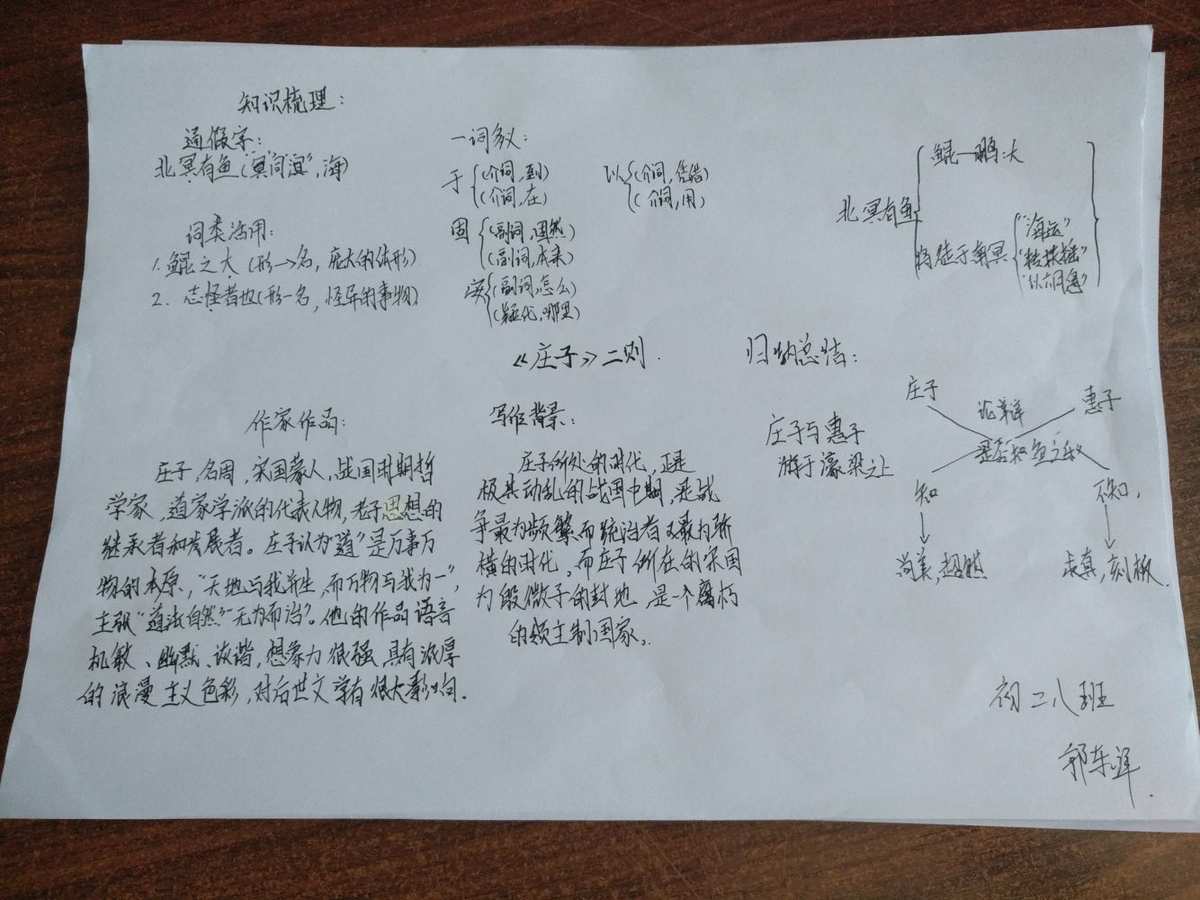 知识梳理：
通假字：
北冥有鱼（"冥"同"溟"，海）
词类活用：
1. 鲲之大（形→名，庞大的体形）
2. 志怪者也（形－名，怪异的事物）
一词多义：
于（介词，到）
（介词，在）
以（介词，凭借）
（介词，用）
固（副词，固然）
（副词，本来）
安（副词，怎么）
（疑代，哪里）
北冥有鱼
鲲—鹏：大
将徙于南冥
"海运"
"抟扶摇"
"以六月息"
《庄子》二则
作家作品：
庄子，名周，宋国蒙人，战国时期哲
学家，道家学派的代表人物，老子思想的
继承者和发展者。庄子认为"道"是万事万
物的本原，"天地与我并生，而万物与我为一"，
主张"道法自然""无为而治"。他的作品语言
机敏、幽默、诙谐，想象力很强，具有浓厚
的浪漫主义色彩，对后世文学有很大影响.
写作背景：
庄子所处的时代，正是
极其动乱的战国中期，是战
争最为频繁而统治者又最为骄
横的时代，而庄子所在的宋国
为殷微子的封地，是一个腐朽
的领主制国家。
归纳总结：
庄子与惠子
游于濠梁之上
庄子
论辩
惠子
是否知鱼之乐
知
不知，
尚美，超然
求真，刻板.
初二八班
郭东洋.